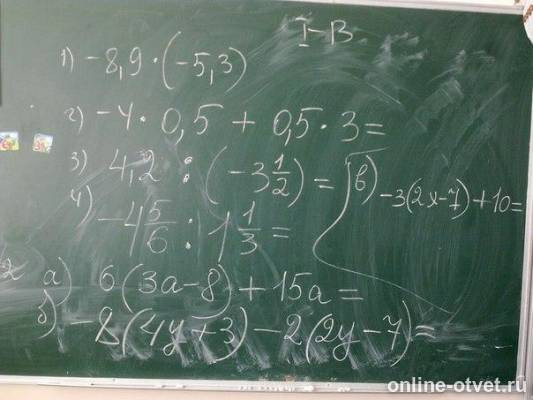 I-В
1) -8,9 · (-5,3)
2) -4 · 0,5 + 0,5 · 3 =
3) 4,2 : (-3 1/2) =
4) -4 5/6 : 1 1/3 =
в) -3(2х-7)+10=
2 а) 6(3а-8)+15а=
б) -8(4у+3)-2(2у-7)=
online-otvet.ru